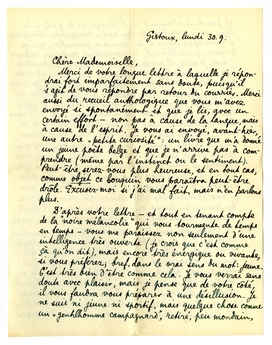 Gistoux, lundi 30.9.
Chère Mademoiselle,
Merci de votre longue lettre à laquelle je répon-
drai fort imparfaitement sans doute, puisqu'il
s'agit de vous répondre par retour du courrier. Merci
aussi du recueil anthologique que vous m'avez
envoyé si spontanément et que je lis, avec un
certain effort – non pas à cause de la langue, mais
à cause de l'esprit. Je vous ai envoyé, avant-hier,
une autre "petite curiosité": un livre que m'a donné
un jeune poète belge et que je n'arrive pas à com-
prendre (même par l'instinct ou le sentiment).
Peut-être serez-vous plus heureuse, et en tout cas,
comme objet ce bouquin vous paraîtra peut être
drôle. Excusez-moi si j'ai mal fait, mais n'en parlons
plus.
D'après votre lettre – et tout en tenant compte
de la noire mélancolie qui vous tourmente de temps
en temps – vous me paraissez non seulement d'une
intelligence très ouverte (je crois que c'est comme
çà qu'on dit), mais encore très énergique ou vivante,
si vous préférez, bref, dans le vrai sens du mot: jeune.
C'est très bien d'être comme cela. Je vous verrai sans
doute avec plaisir, mais je pense que de votre côté,
il vous faudra vous préparer à une désillusion. Je
ne suis ni jeune ni sportif, mais quelque chose comme
un "gentilhomme campagnard", retiré, peu mondain,